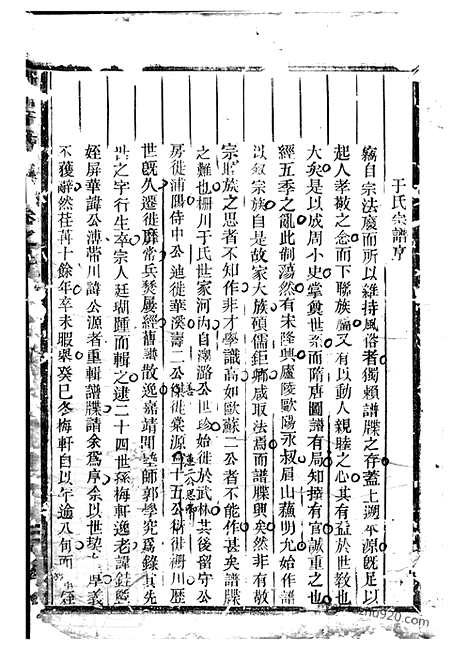 于氏宗譜序
竊自宗法廢而所以維持風俗者獨賴譜牒之存蓋上溯平源旣足以
起人孝敬之念而下聯族屬又有以動人親睦之心其有益於世教也
大矣是以成周小史掌奠世系而隋唐圖譜有局知撰有官誠重之也
經五季之亂此制蕩然有宋隆興廬陵歐陽永叔眉山蘇明允始作譜
以敘宗族自是故家大族碩儒鉅卿咸取法焉而譜牒興矣然非有敬
宗睦族之思者不知作非才學識高如歐蘇二公者不能作甚矣譜牒
之難也柵川于氏世家河內自澤潞公世珍始徙於武林其後留守公
房徙浦陽侍中公迪徙華溪壽二公傑徙棠源四十五公衍徙柵川歷
惠二公恩師
世旣久遷徙靡常兵燹屢經舊譜散逸嘉靖間塾師郭學究爲錄其先
世之字行生卒宗人廷瑚踵而輯之建二十四世孫梅軒逸老諱鉞曁
姪屏華諱公溥帶川諱公源者重輯譜牒請余爲序余以世契厚義
不獲辭然荏苒十餘年卒未暇舉癸巳冬梅軒自以年逾八旬而
卷之